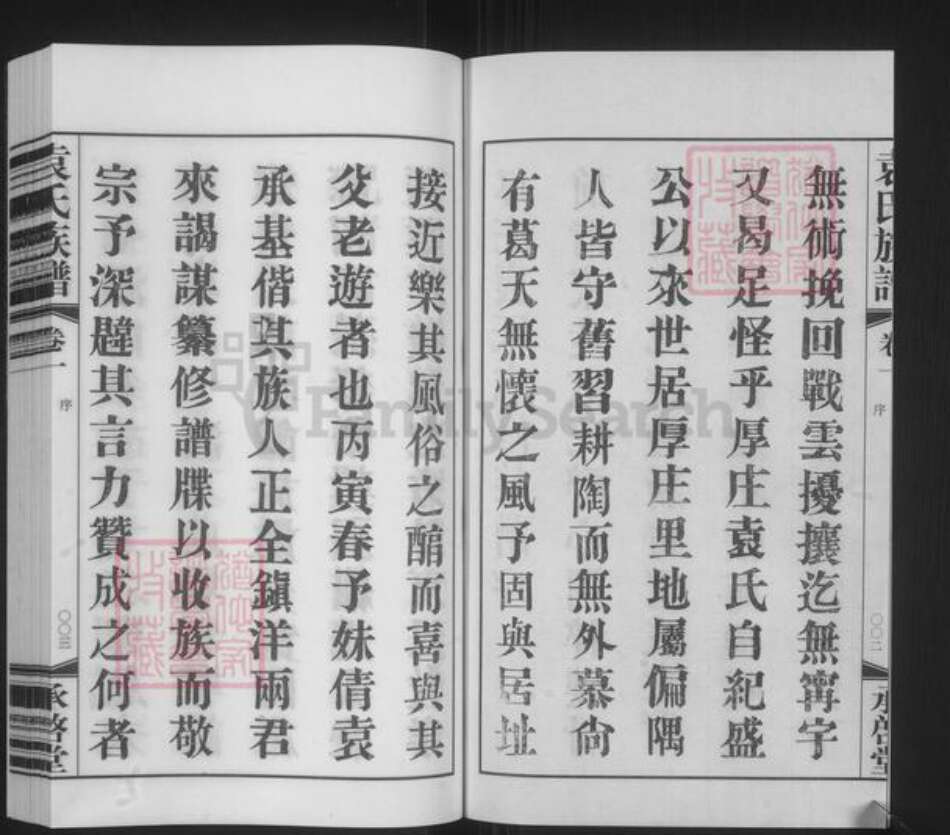 袁氏族譜
卷一
序
〇〇二
承啓堂
無術挽回戰雲擾攘迄無甯宇
又曷足怪乎厚庄袁氏自紀盛
公以來世居厚庄里地屬偏隅
人皆守舊習耕陶而無外慕尙
有葛天無懷之風予固與居址
接近樂其風俗之醕而喜與其
父老遊者也丙寅春予妹倩袁
承基偕其族人正全鎭洋兩君
來謁謀纂修譜牒以收族而敬
宗予深韙其言力贊成之何者
袁氏族譜
卷一
序
〇〇三
承啓堂
FamilySearch